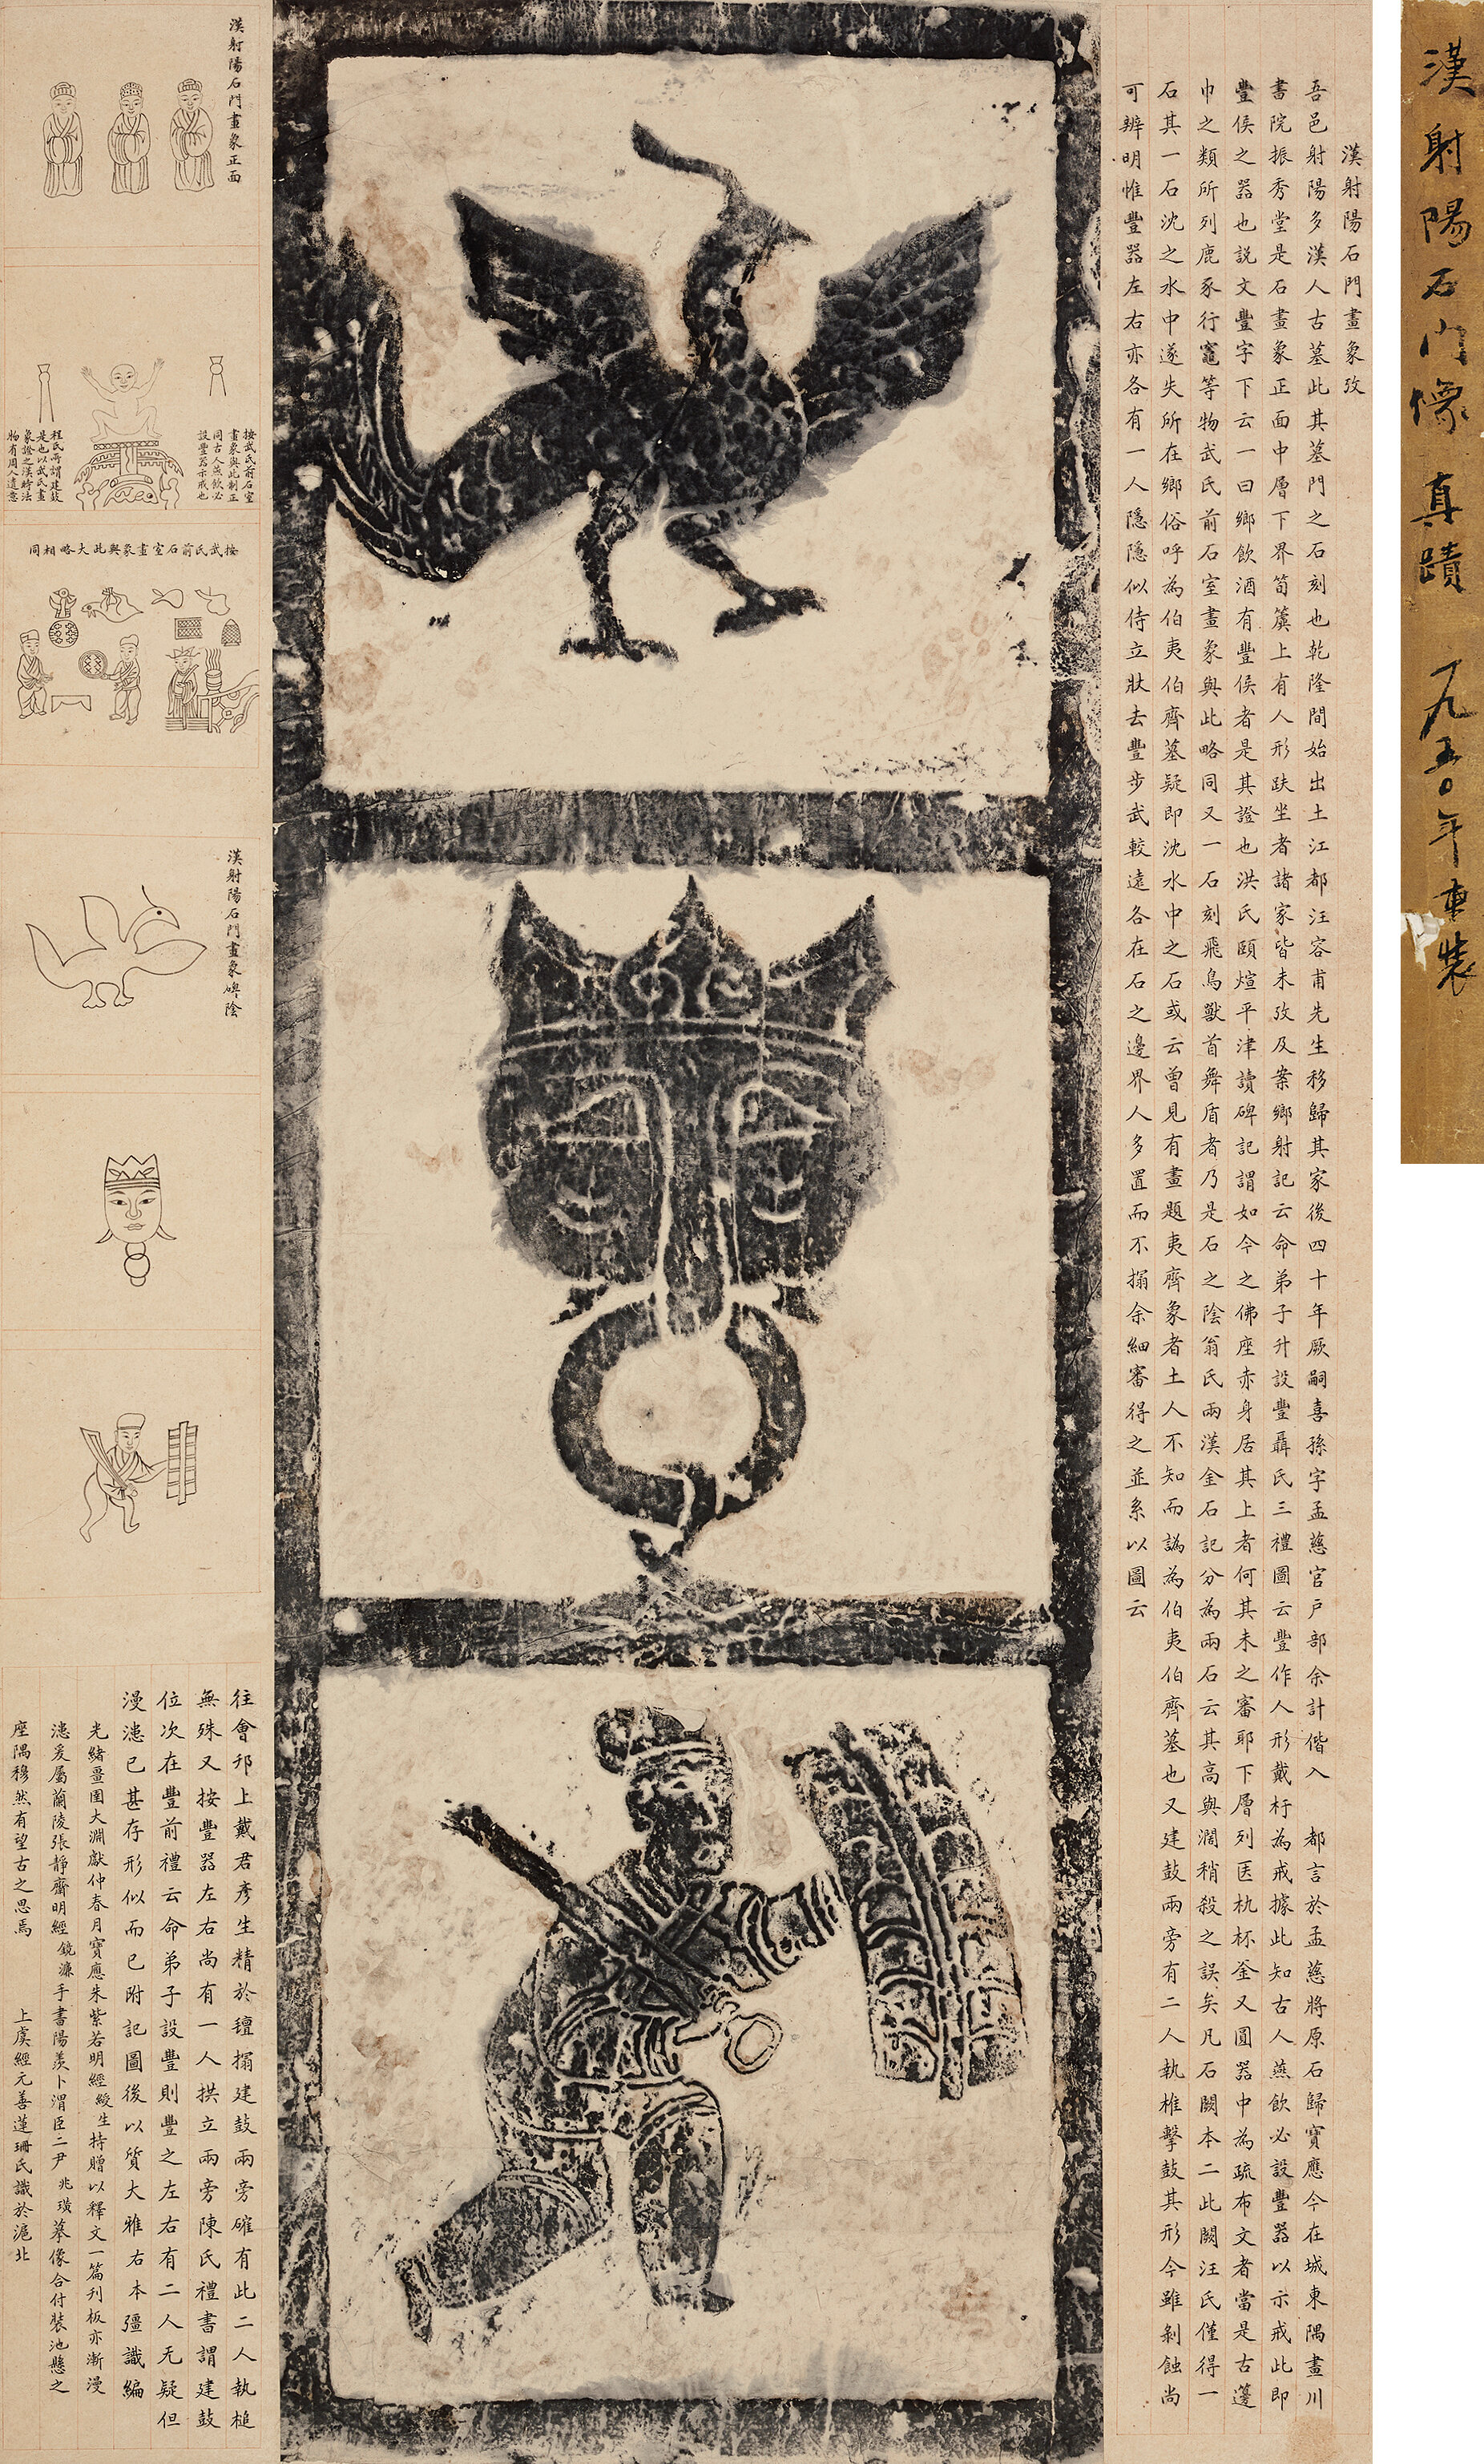 漢射陽石門像真蹟 一九五〇年重裝
漢射陽石門畫象攷
吾邑射陽多漢人古墓此其墓門之石刻也乾隆間始出土江都汪容甫先生移歸其家後四十年厥嗣喜孫字孟慈官戶部余計偕入 都言於孟慈將原石歸寶應今在城東隅畫川
書院振秀堂是石畫象正面中層下界筍簴上有人形趺坐者諸家皆未攷及案鄉射記云命弟子升設豐聶氏三禮圖云豐作人形戴杅為戒據此知古人燕飲必設豐器以示戒此即
豐侯之器也說文豐字下云一曰鄉飲酒有豐侯者是其證也洪氏頤煊平津讀碑記謂如今之佛座赤身居其上者何其未之審耶下層列匜杋杯釜又圓器中為疏布文者當是古籩
巾之類所列鹿豕行竈等物武氏前石室畫象與此略同又一石刻飛鳥獸首舞盾者乃是石之陰翁氏兩漢金石記分為兩石云其高與濶稍殺之誤矣凡石闕本二此闕汪氏僅得一
石其一石沈之水中遂失所在鄉俗呼為伯夷伯齊墓疑即沈水中之石或云曾見有畫題夷齊象者土人不知而譌為伯夷伯齊墓也又建鼓兩旁有二人執椎擊鼓其形今雖剝蝕尚
可辨明惟豐器左右亦各有一人隱隱似侍立狀去豐步武較遠各在石之邊界人多置而不搨余細審得之並系以圖云
漢射陽石門畫象正面
按武氏前石室
畫象與此制正
同古人燕飲必
設豐器示戒也
程氏所謂建鼓
是也以武氏畫
象證之漢時法
物有周人遺意
按武氏前石室畫象與此大略相同
漢射陽石門畫象碑陰
往會邗上戴君彥生精於氊搨建鼓兩旁確有此二人執槌
無殊又按豐器左右尚有一人拱立兩旁陳氏禮書謂建鼓
位次在豐前禮云命弟子設豐則豐之左右有二人无疑但
漫漶已甚存形似而已附記圖後以質大雅右本彊識編
光緒疆圉大淵獻仲春月寶應朱紫若明經綬生持贈以釋文一篇刊板亦漸漫
漶爰屬蘭陵張靜齋明經鏡濂手書陽羨卜渭臣二尹兆璜摹像合付裝池懸之
座隅穆然有望古之思焉 上虞經元善蓮珊氏識於滬北